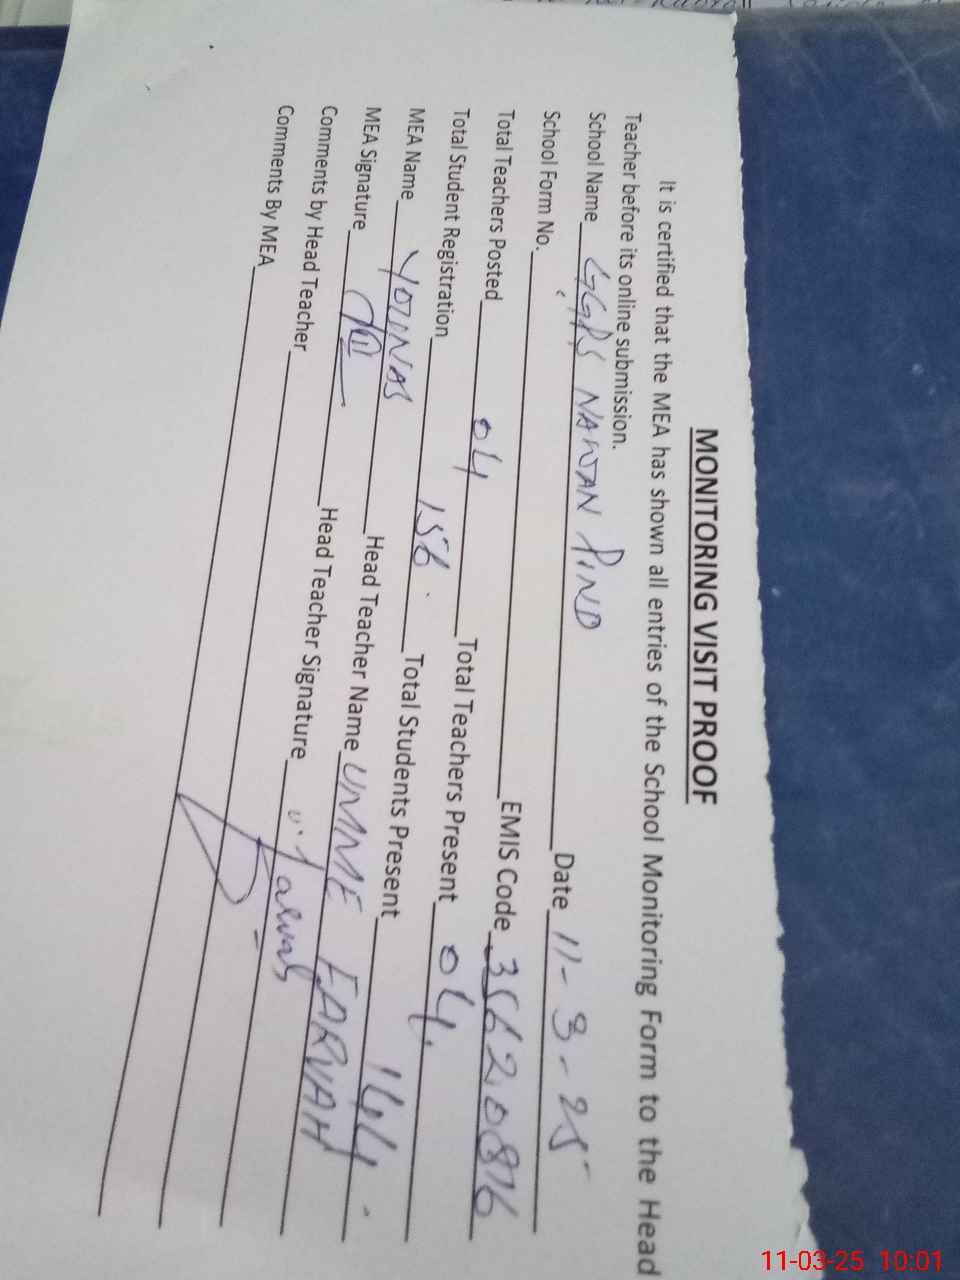 MONITORING VISIT PROOF
It is certified that the MEA has shown all entries of the School Monitoring Form to the Head
Teacher before its online submission.
School Name GGPS NAWAN PIND Date 11-3-25
School Form No. EMIS Code 35620816
Total Teachers Posted 04 Total Teachers Present 04
Total Student Registration 156 Total Students Present 144
MEA Name YOUNAS Head Teacher Name UMME FARVAH
MEA Signature Head Teacher Signature
Comments by Head Teacher
Comments By MEA
11-03-25 10:01